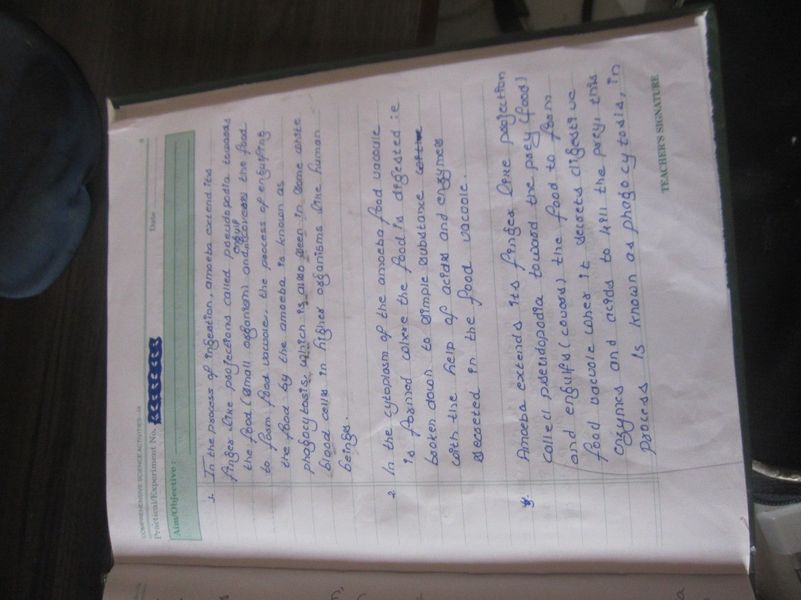 COMPREHENSIVE SCIENCE ACTIVITIES
Practical/Experiment No.
Date
Aim/Objective :
1. In the process of ingestion, amoeba extend its
finger like projections called pseudopodia towards
engulf
the food (small organism) and covers the food
to form food vacuole. the process of engulfing
the food by the amoeba is known as
phagocytosis, which is also seen in some white
blood cells in higher organisms like human
beings.
2. In the cytoplasm of the amoeba food vacuole
is formed where the food is digested ie
broken down to simple substance
with the help of acids and enzymes
secreted in the food vacuole.
Amoeba extends its finger like projection
called pseudopodia toward the prey (food)
and engulfs (covers) the food to form
food vacuole when it secrets digestive
enzymes and acids to kill the prey, this
process is known as phagocytosis, in
TEACHER'S SIGNATURE